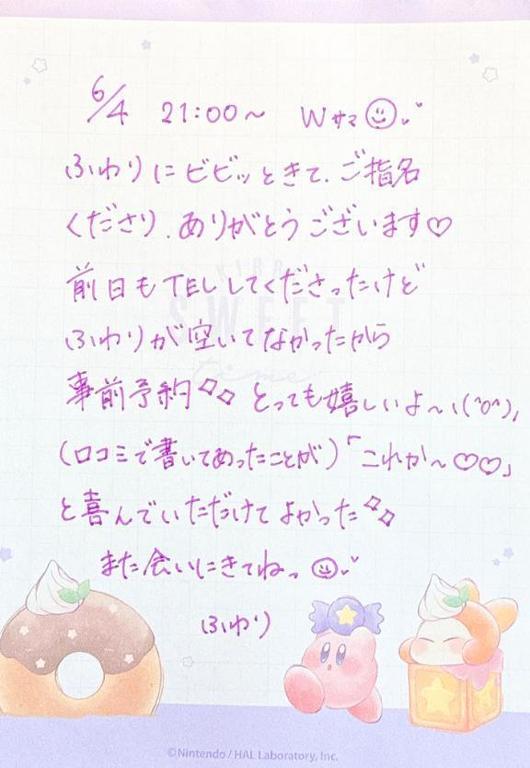 6/4 21:00～ Wサマ
ふわりにビビッときて、ご指名
くださり、ありがとうございます♡
前日もTELしてくださったけど
ふわりが空いてなかったから
事前予約 とっても嬉しいよ〜\(^o^)/
(口コミで書いてあったことが)「これか〜♡♡」
と喜んでいただけてよかった
また会いにきてねっ
ふわり
KIRBY
SWEET
time
©Nintendo / HAL Laboratory, Inc.